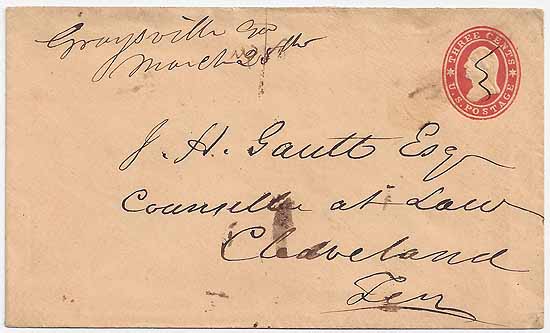 Graysville Ga
March 28th
THREE CENTS
U.S. POSTAGE
J. H. Gautt Esq
Counseller at Law
Cleveland
Ten